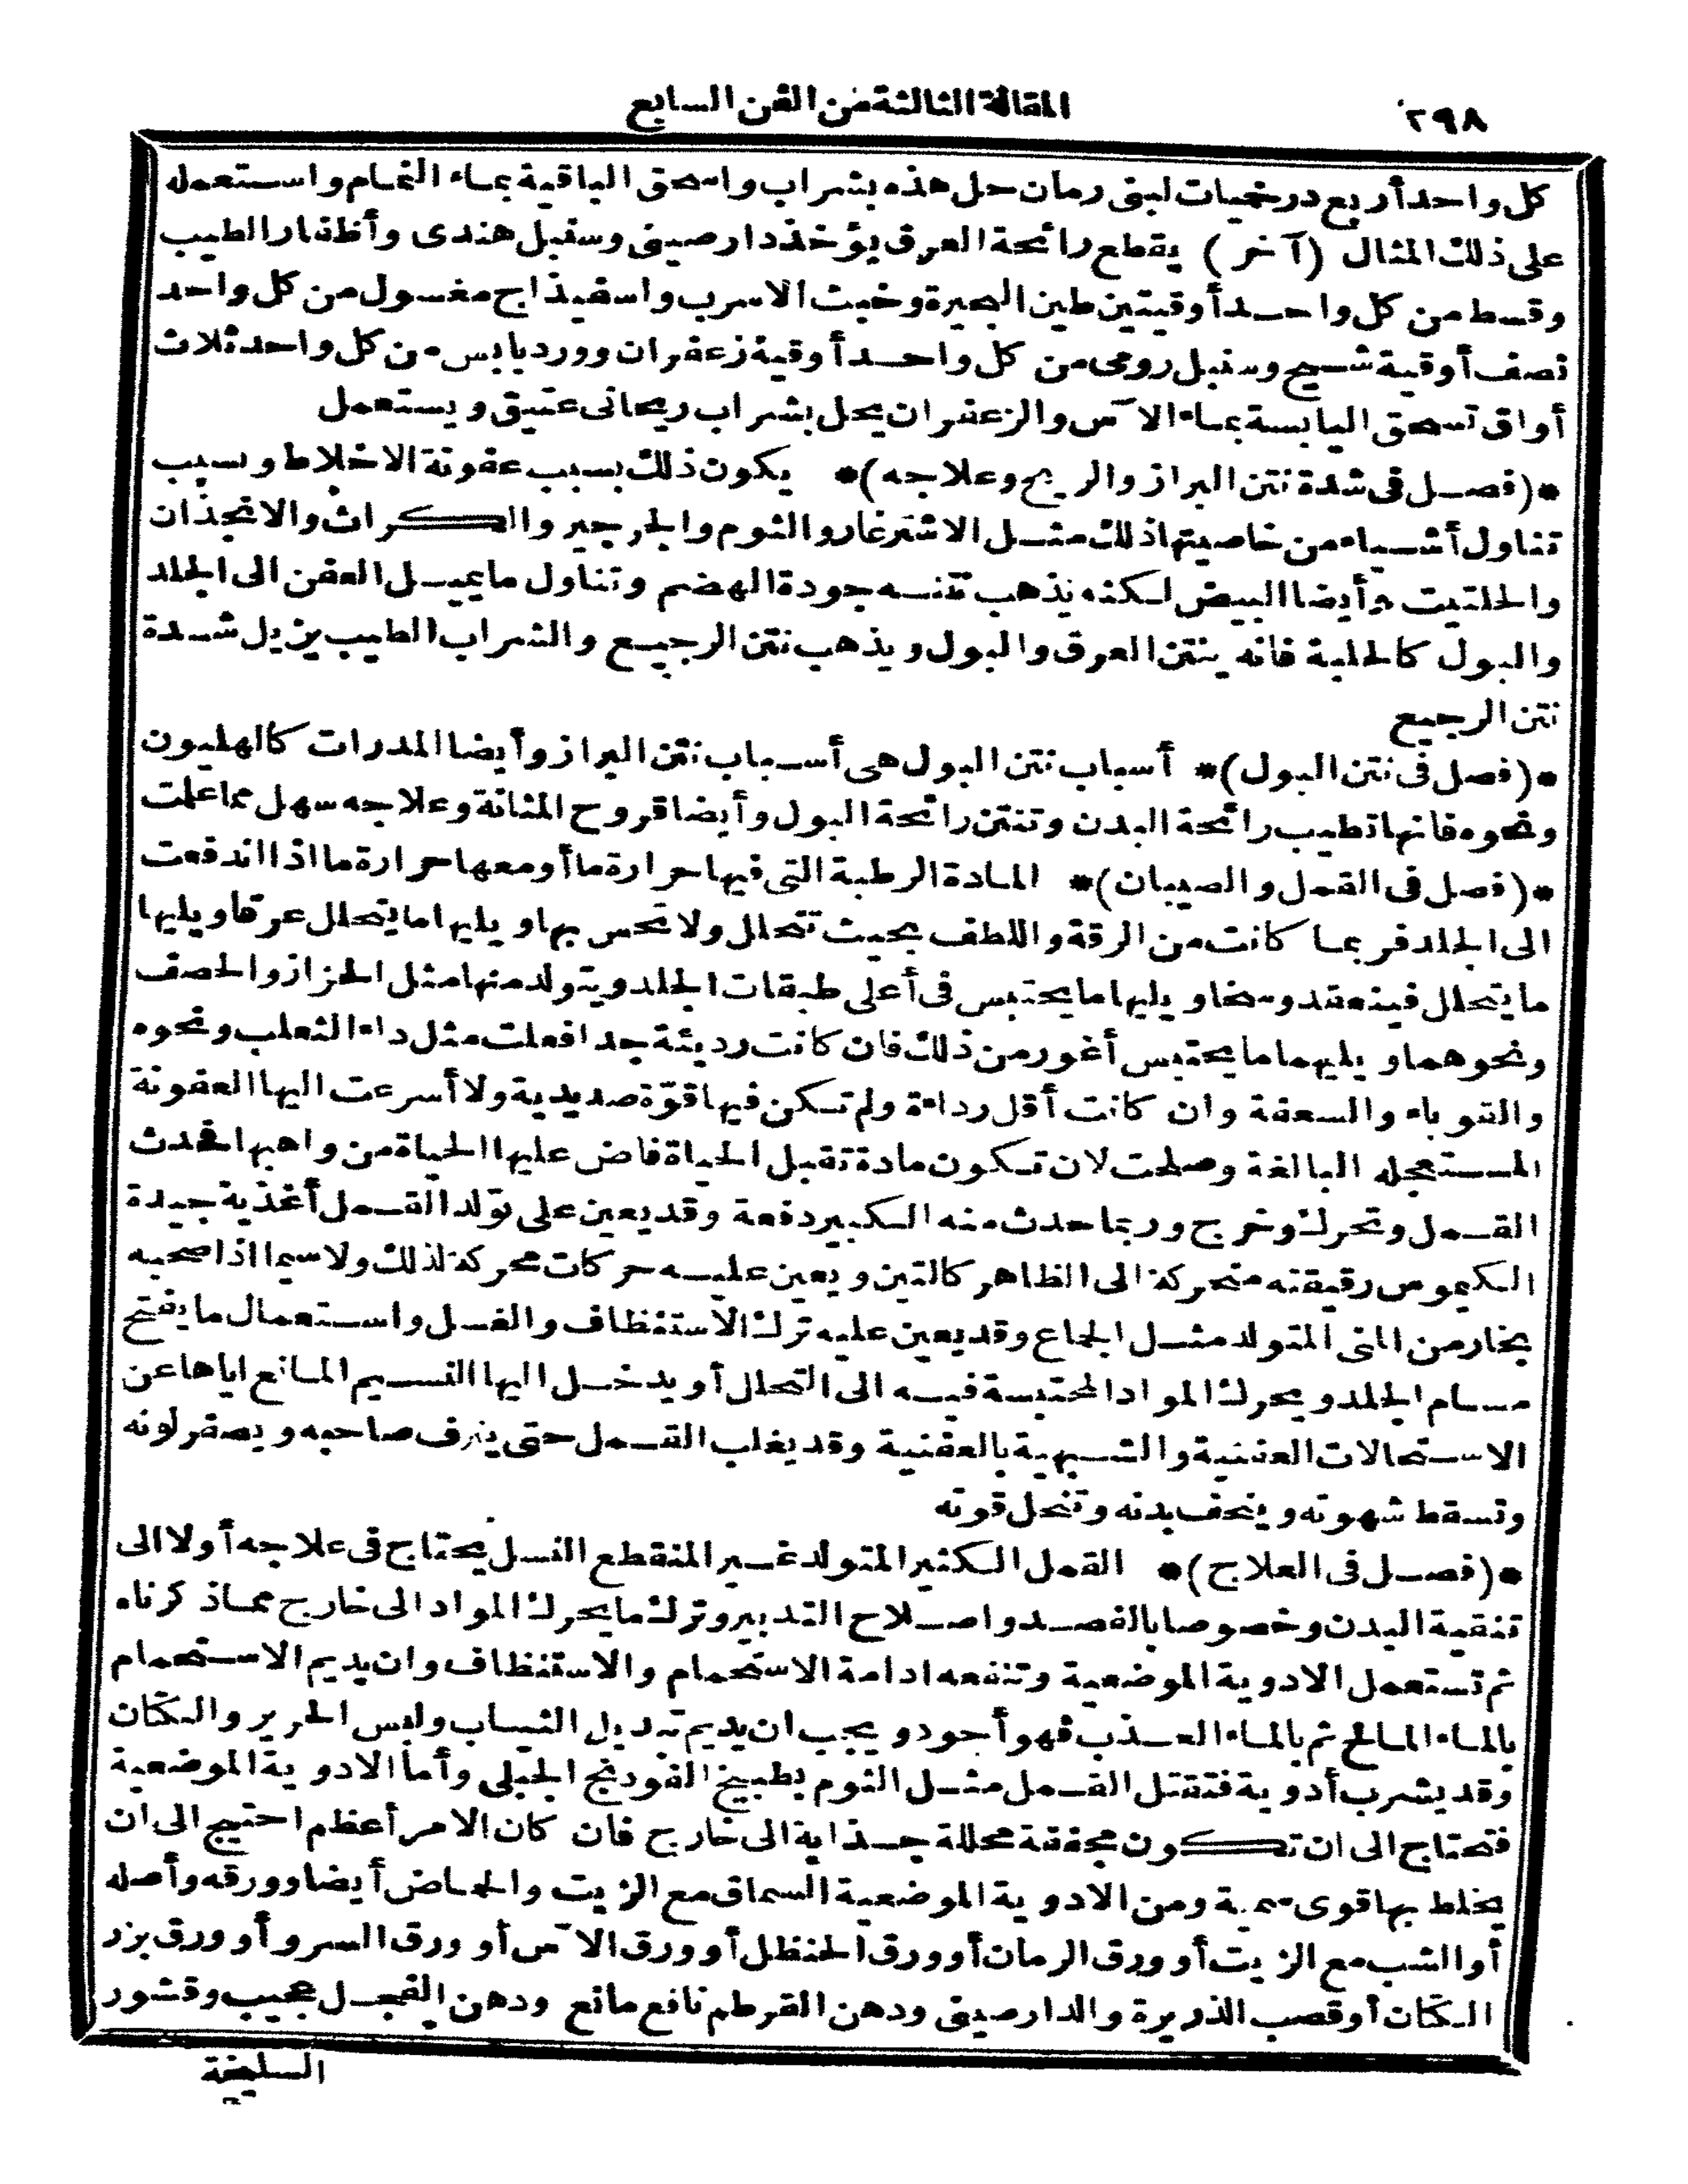 ٢٩٨
المقالة الثالثة من الفن السابع
كل واحد أربع درخميات لبنى رمان حل هذه بشراب واسحق الباقية بماء النمام واستعمله
على ذلك المثال (آخر) يقطع رائحة العرق يؤخذ دارصينى وسنبل هندى وأظفار الطيب
وقسط من كل واحد أوقيتين طين البحيرة وخبث الاسرب واسفيذاج مغسول من كل واحد
نصف أوقية شيح وسنبل رومى من كل واحد أوقية زعفران وورد يابس من كل واحد ثلاث
أواق تسحق اليابسة بماء الآس والزعفران يحل بشراب ريحانى عتيق ويستعمل
*(فصل فى شدة نتن البراز والريح وعلاجه)* يكون ذلك بسبب عفونة الاخلاط وبسبب
تناول أشياء من خاصيتها ذلك مثل الاشترغار والثوم والجرجير والكراث والانجذان
والحلتيت وأيضا البيض لكنه يذهب نتنه جودة الهضم وتناول ما يميل العفن الى الجلد
والبول كالحلبة فانه ينتن العرق والبول ويذهب نتن الرجيع والشراب الطيب يزيل شدة
نتن الرجيع
*(فصل فى نتن البول)* أسباب نتن البول هى أسباب نتن البراز وأيضا المدرات كالهليون
ونحوه فانها تطيب رائحة البدن وتنتن رائحة البول وأيضا قروح المثانة وعلاجه سهل مما علمت
*(فصل فى القمل والصيبان)* المادة الرطبة التى فيها حرارة ما أو معها حرارة ما اذا اندفعت
الى الجلد فربما كانت من الرقة واللطف بحيث تتحلل ولا تحس بها ويليها ما يتحلل عرقا ويليها
ما يتحلل فينعقد وسخا ويليها ما يحتبس فى أعلى طبقات الجلد ويتولد منها مثل الحزاز والحصف
ونحوهما ويليهما ما يحتبس أغور من ذلك فان كانت رديئة جدا فعلت مثل داء الثعلب ونحوه
والقوباء والسعفة وان كانت أقل رداءة ولم تكن فيها قوّة صديدية ولا أسرعت اليها العفونة
المستعجله البالغة وصلحت لان تكون مادة تقبل الحياة فاض عليها الحياة من واهبها فحدث
القمل وتحرك وخرج وربما حدث منه الكبير دفعة وقد يعين على تولد القمل أغذية جيدة
الكيموس رقيقته متحركة الى الظاهر كالتين ويعين عليه حركات محركة لذلك ولا سيما اذا صحبه
بخار من المنى المتولد مثل الجماع وقد يعين عليه ترك الاستنظاف والغسل واستعمال ما يفتح
مسام الجلد ويحرك المواد المحتبسة فيه الى التحلل أو يدخل اليها النسيم المانع اياها عن
الاستحالات العفنية والشبهية بالعفنية وقد يغلب القمل حتى ينزف صاحبه ويصفر لونه
وتسقط شهوته وينحف بدنه وتنحل قوته
*(فصل فى العلاج)* القمل الكثير المتولد غير المنقطع النسل يحتاج فى علاجه أولا الى
تنقية البدن وخصوصا بالفصد واصلاح التدبير وترك ما يحرك المواد الى خارج مما ذكرناه
ثم تستعمل الادوية الموضعية وتنفعه ادامة الاستحمام والاستنظاف وان يديم الاستحمام
بالماء المالح ثم بالماء العذب فهو أجود ويجب ان يديم تبديل الثياب ولبس الحرير والكتان
وقد يشرب أدوية فتقتل القمل مثل الثوم بطبيخ الفودنج الجبلى وأما الادوية الموضعية
فتحتاج الى ان تكون مجففة محللة جذابة الى خارج فان كان الامر أعظم احتيج الى ان
يخلط بها قوى سمية ومن الادوية الموضعية السماق مع الزيت والحماض أيضا وورقه وأصله
أو الشب مع الزيت أو ورق الرمان أو ورق الحنظل أو ورق الآس أو ورق السرو أو ورق بزر
الكتان أو قصب الذريرة والدارصينى ودهن القرطم نافع مانع ودهن الفجل عجيب وقشور
السليخة